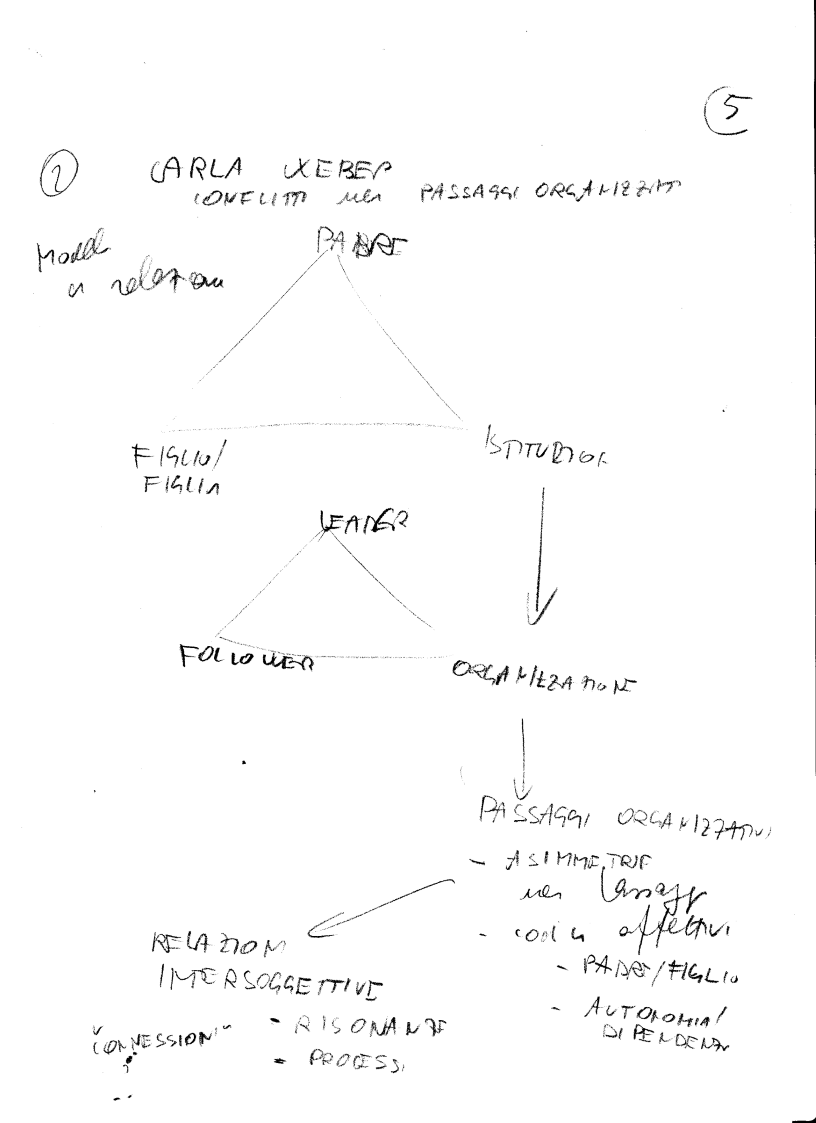 5
2 CARLA WEBER
CONFLITTI nei PASSAGGI ORGANIZZATI
Modelli
di relazione
PADRE
FIGLIO/
FIGLIA
ISTITUZIONE
LEADER
FOLLOWER
ORGANIZZAZIONE
PASSAGGI ORGANIZZATIVI
- ASIMMETRIE
nei
- codici affettivi
- PADRE/FIGLIO
- AUTONOMIA/
DIPENDENZA
RELAZIONI
INTERSOGGETTIVE
"CONNESSIONI"
- RISONANZE
- PROCESSI